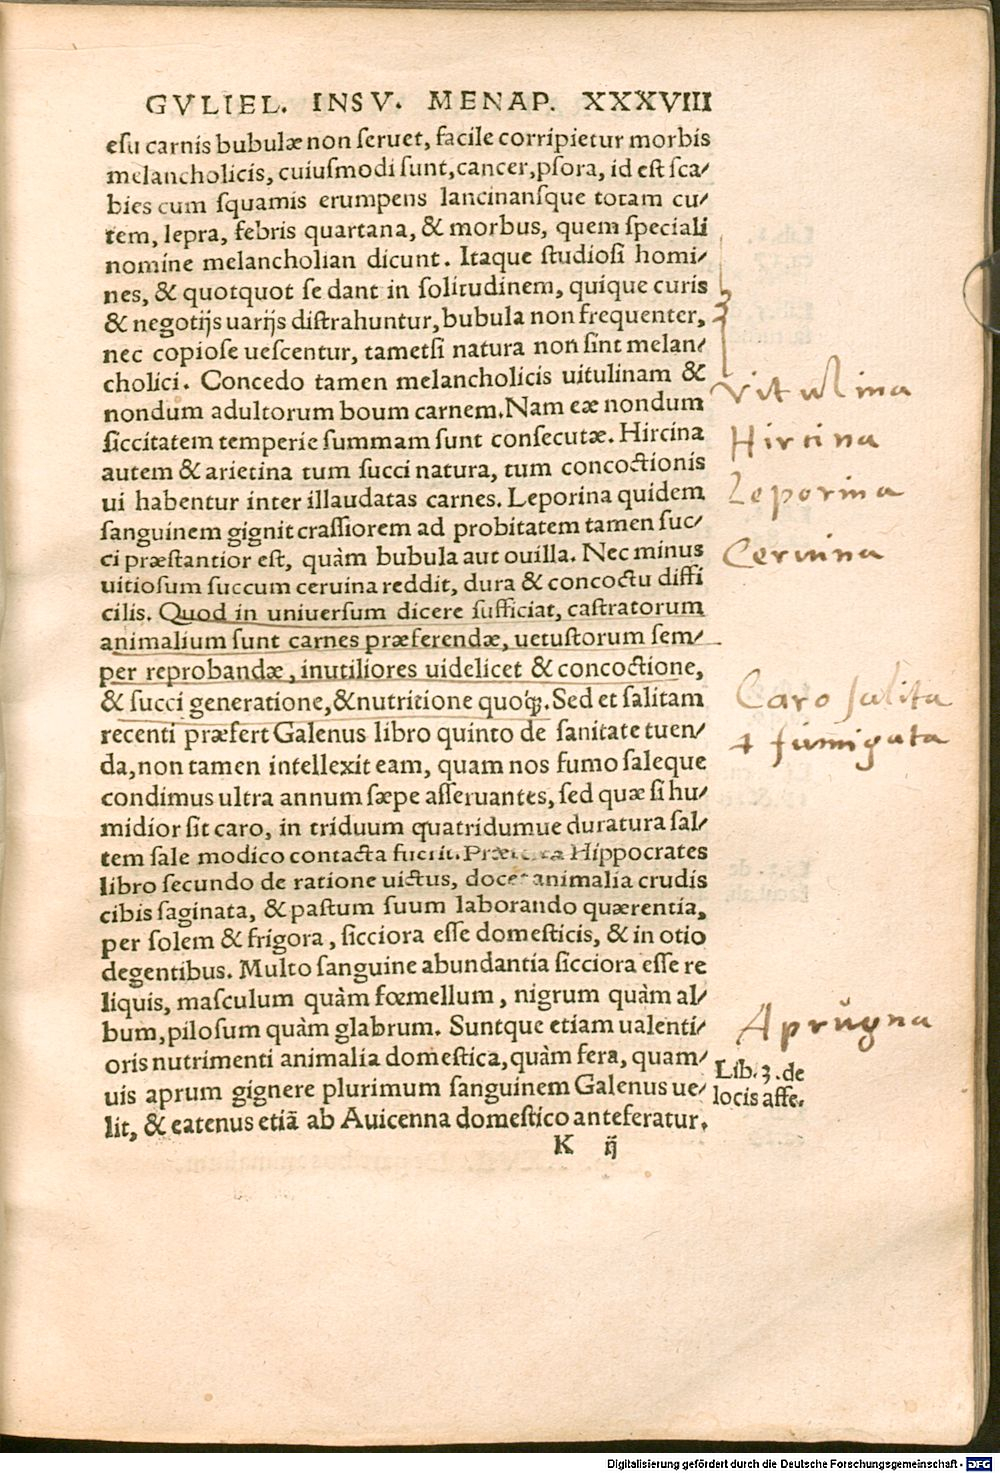 GVLIEL. INSV. MENAP. XXXVIII
esu carnis bubulæ non seruet, facile corripietur morbis
melancholicis, cuiusmodi sunt, cancer, psora, id est sca/
bies cum squamis erumpens lancinansque totam cu/
tem, lepra, febris quartana, & morbus, quem speciali
nomine melancholian dicunt. Itaque studiosi homi/
nes, & quotquot se dant in solitudinem, quique curis
& negotijs uarijs distrahuntur, bubula non frequenter,
nec copiose uescentur, tametsi natura non sint melan/
cholici. Concedo tamen melancholicis uitulinam &
Vitulina
nondum adultorum boum carnem. Nam eæ nondum
siccitatem temperie summam sunt consecutæ. Hircina
Hircina
autem & arietina tum succi natura, tum concoctionis
ui habentur inter illaudatas carnes. Leporina quidem
Leporina
sanguinem gignit crassiorem ad probitatem tamen suc/
ci præstantior est, quàm bubula aut ouilla. Nec minus
Ceruina
uitiosum succum ceruina reddit, dura & concoctu diffi
cilis. Quod in uniuersum dicere sufficiat, castratorum
animalium sunt carnes præferendæ, uetustorum sem/
per reprobandæ, inutiliores uidelicet & concoctione,
& succi generatione, & nutritione quoq;. Sed et salitam
Caro salita
recenti præfert Galenus libro quinto de sanitate tuen/
+ fumigata
da, non tamen intellexit eam, quam nos fumo saleque
condimus ultra annum sæpe asseruantes, sed quæ si hu/
midior sit caro, in triduum quatridumue duratura sal/
tem sale modico contacta fuerit. Præterea Hippocrates
libro secundo de ratione uictus, docet animalia crudis
cibis saginata, & pastum suum laborando quærentia,
per solem & frigora, sicciora esse domesticis, & in otio
degentibus. Multo sanguine abundantia sicciora esse re
liquis, masculum quàm fœmellum, nigrum quàm al/
bum, pilosum quàm glabrum. Suntque etiam ualenti/
Aprugna
oris nutrimenti animalia domestica, quàm fera, quam/
uis aprum gignere plurimum sanguinem Galenus ue/
Lib. 3. de
locis affe.
lit, & eatenus etiã ab Auicenna domestico anteferatur.
K ij
Digitalisierung gefördert durch die Deutsche Forschungsgemeinschaft - DFG